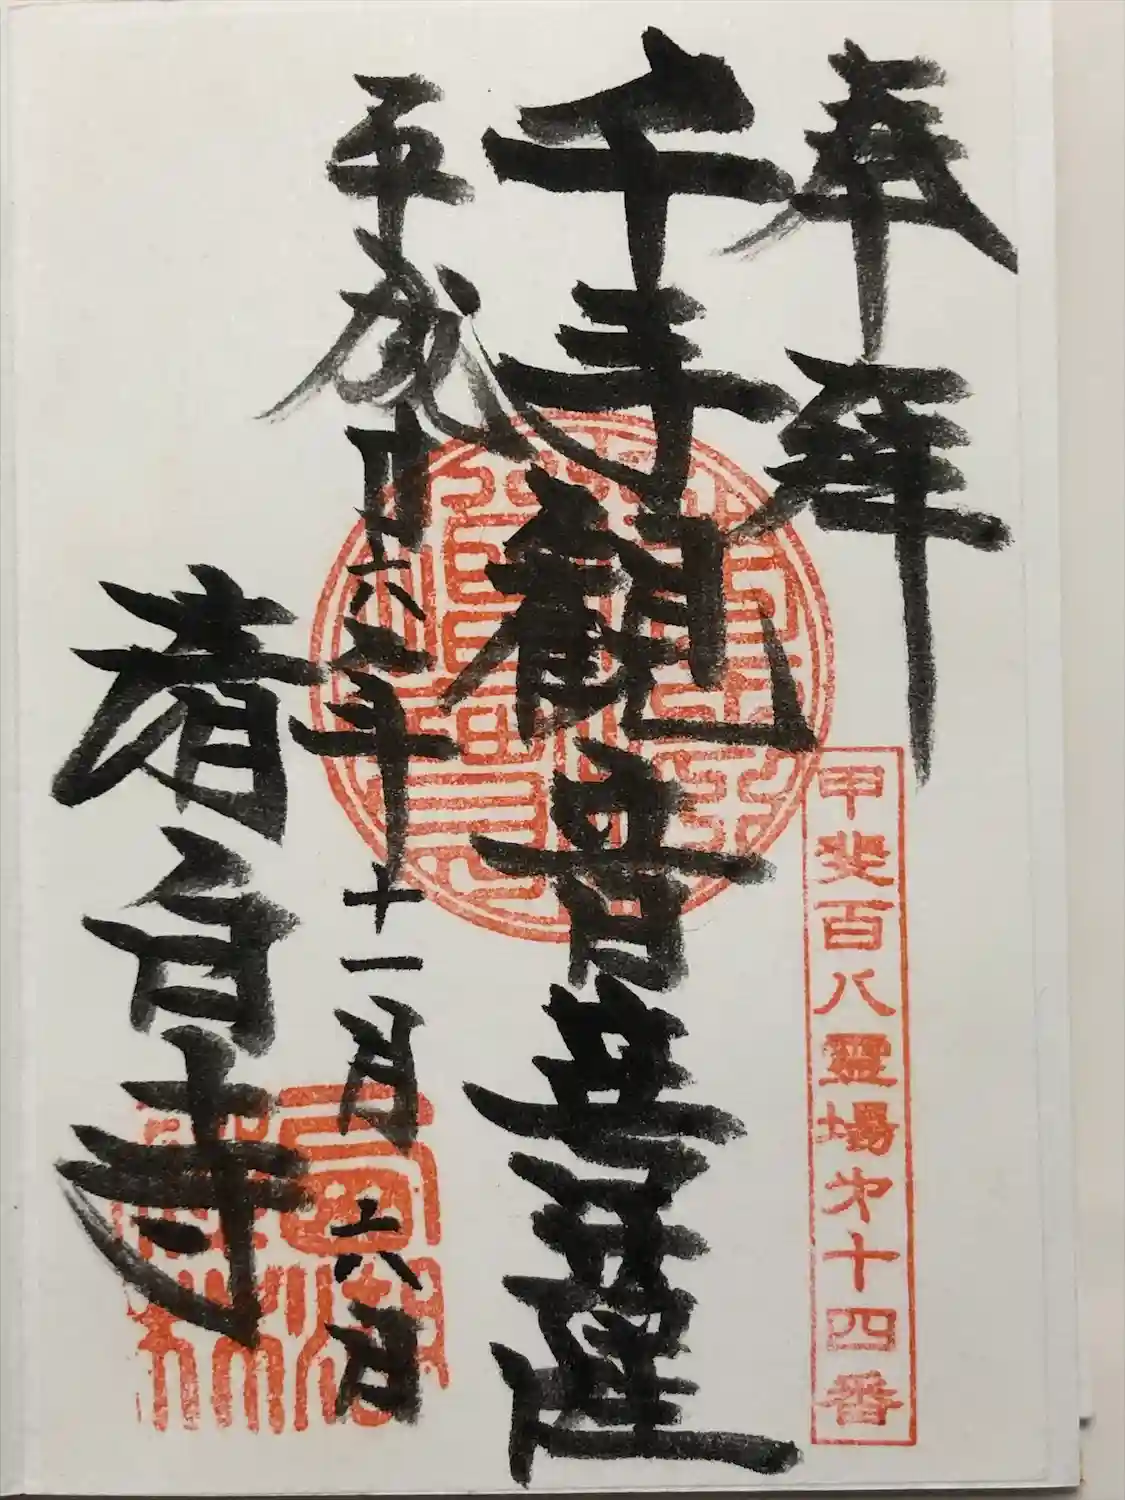 奉拝
甲斐百八霊場㐧十四番
千手観音菩薩
平成廿六年十一月六日
清白寺